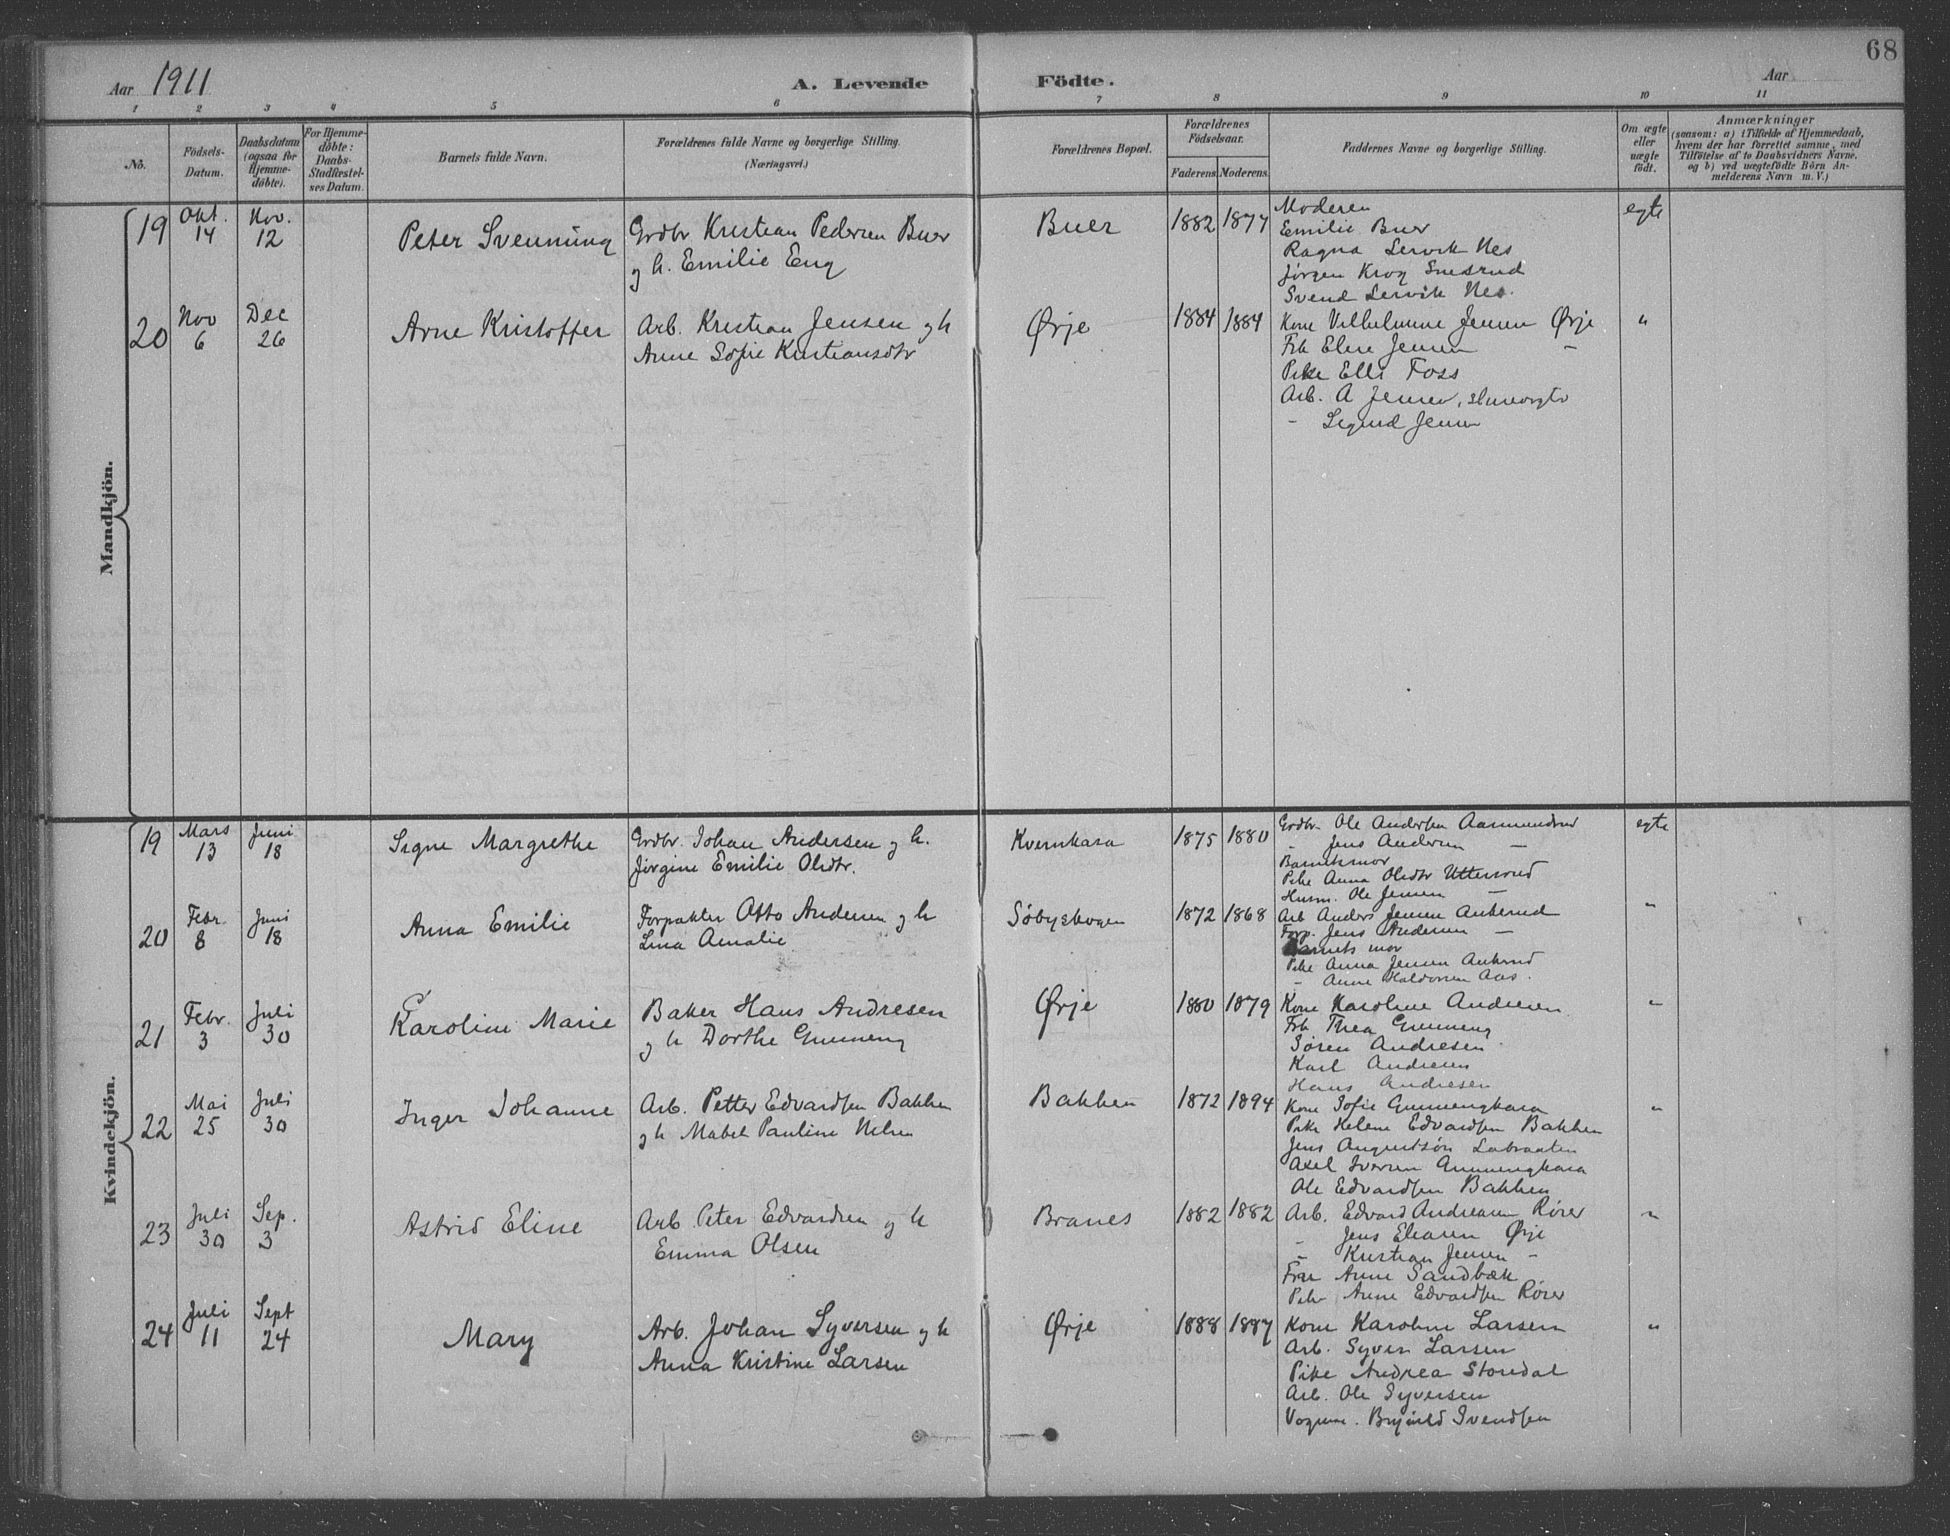 68
Aar 1911 A. Levende Födte. Aar
1 2 3 4 5 6 7 8 9 10 11
No.
Födsels-
Datum.
Daabsdatum
(ogsaa for
Hjemme-
döbte).
For Hjemme-
döbte:
Daabs-
Stadfæstel-
ses Datum.
Barnets fulde Navn.
Forældrenes fulde Navne og borgerlige Stilling.
(Næringsvei.)
Forældrenes Bopæl.
Forældrenes
Födselsaar.
Faderens. Moderens.
Faddernes Navne og borgerlige Stilling.
Om ægte
eller
uægte
födt.
Anmærkninger
(saasom: a) i Tilfælde af Hjemmedaab,
hvem der har forrettet samme, med
Tilföielse af to Daabsvidners Navne.
og b) ved uægtefödte Börn An-
melderens Navn m. V.)
Mandkjön.
19
Okt.
14
Nov.
12
Peter Svenning
Grdbr Kristian Pedersen Buer
og h. Emilie Eng
Buer
1882 1877
Moderen
Emilie Buer
Ragna Lervik Nes
Jørgen Krog Snesrud
Svend Lervik Nes.
egte
20
Nov
6
Dec
26
Arne Kristoffer
Arb. Kristian Jensen og h
Anne Sofie Kristiansdtr
Ørje
1884 1884
Kone Vilhelmine Jensen Ørje
Frk Elise Jensen -
Pike Elli Foss
Arb. A Jensen,
- Sigurd Jensen
"
Kvindekjön.
19
Mars
13
Juni
18
Signe Margrethe
Grdbr. Johan Andersen og h.
Jørgine Emilie Olsdtr.
Kvernkasa
1875 1880
Grdbr. Ole Andersen Aarmundrud
- Jens Andersen -
Barnets mor
Pike Anna Olsdtr
Husm. Ole Jensen -
egte
20
Febr.
8
Juni
18
Anna Emilie
Forpakter Otto Andersen og h
Lina Amalie
1872 1868
Arb Anders Jensen Ankerud
Forp. Jens Andersen -
Barnets mor
Pike Anna Jensen Ankerud
- Anne Haldorsen Aas.
"
21
Febr.
3
Juli
30
Karoline Marie
Baker Hans Andresen
og h Dorthe Gunneng
Ørje
1880 1879
Kone Karoline Andresen
Frk Thea Gunneng
Søren Andresen
Karl Andresen
Hans Andresen
"
22
Mai
25
Juli
30
Inger Johanne
Arb. Petter Edvardsen Bakken
og h Mabel Pauline Nelsen
Bakken
1872 1894
Kone Sofie Gunnengkasa
Pike Helene Edvardsen Bakken
Jens Augustsøn Labraaten
Axel Iversen Gunnengkasa
Ole Edvardsen Bakken
"
23
Juli
30
Sep.
3
Astrid Eline
Arb. Peter Edvardsen og h
Emma Olsen
Branes
1882 1882
Arb. Edvard Andreasen Rörer
- Jens Eliasen Ørje
- Kristian Jensen -
Fru Anne Sandbæk
Pike Anne Edvardsen Rörer
"
24
Juli
11
Sept
24
Mary
Arb. Johan Syversen og h
Anna Kristine Larsen
Ørje
1888 1887
Kone Karoline Larsen
Arb. Syver Larsen
Pike Andrea Stordal
Arb. Ole Syversen
Vognm. Brynild Svendsen
"